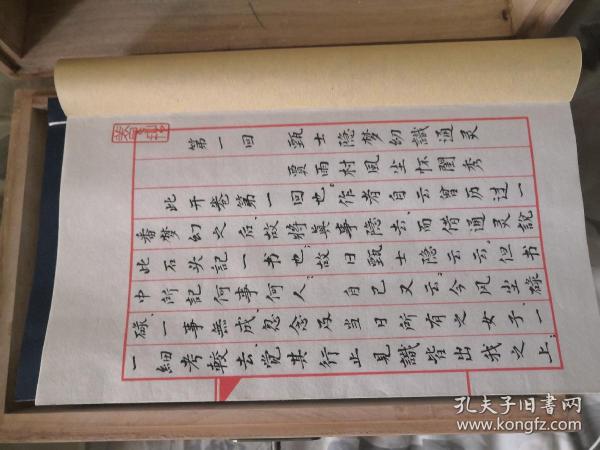 第一回 甄士隐梦幻識通灵
賈雨村風尘怀閨秀
此开卷第一回也。作者自云曾历过一
番梦幻之后,故將真事隐去,而借通灵說
此石头記一书也;故曰甄士隐云云。但书
中所記何事何人;自己又云:今风尘碌
碌,一事無成,忽念及当日所有之女子,一
一細考較去,觉其行止見識皆出我之上;
孔夫子旧书网